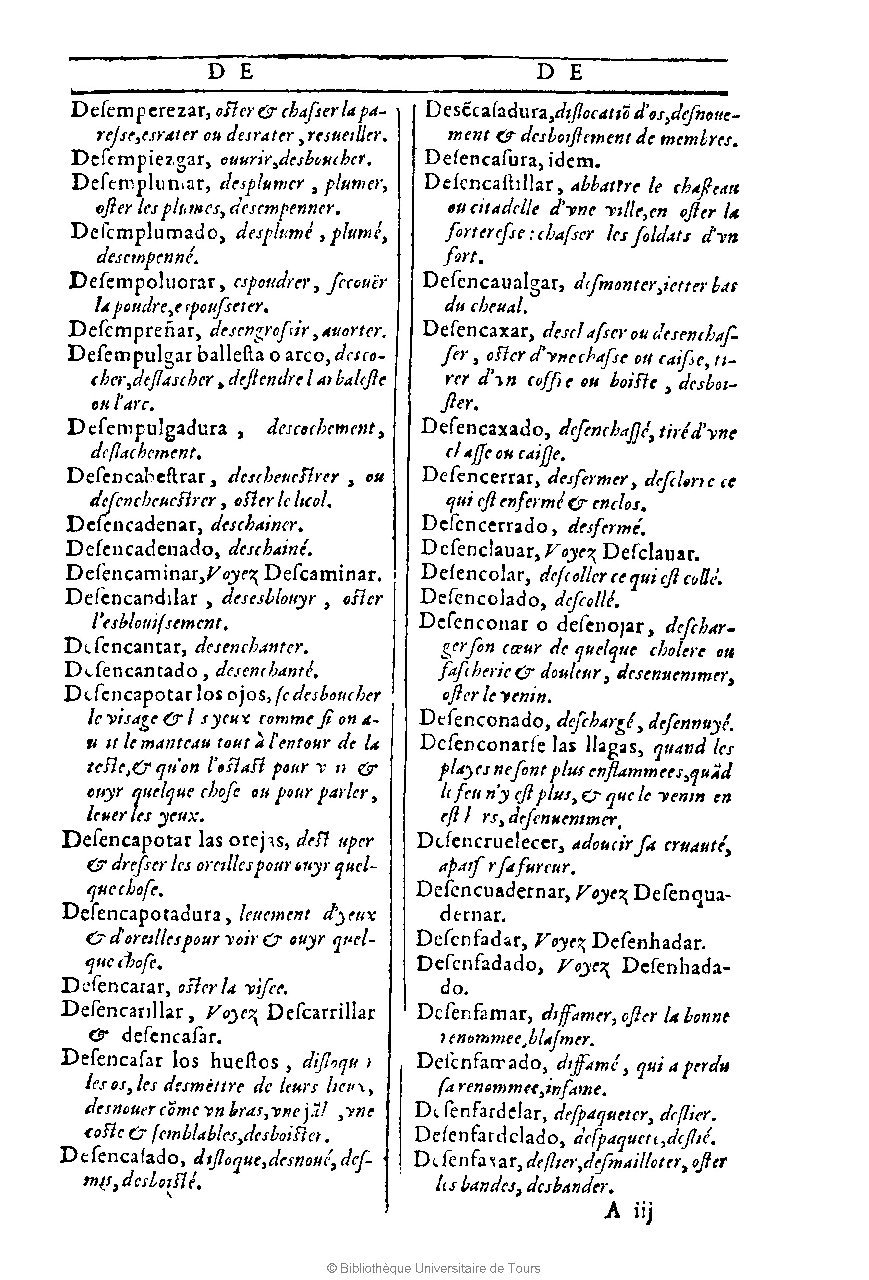 D E
Deſemperezar, oſter & chaſser la pa-
reſse, esrater ou desrater, resueiller.
Deſempiezgar, ouurir, desboucher.
Deſemplumar, desplumer, plumer,
oſter les plumes, desempenner.
Deſemplumado, desplumé, plumé,
desempenné.
Deſempoluorar, espoudrer, ſecouër
la poudre, espouſseter.
Deſempreñar, desengroſsir, auorter.
Deſempulgar balleſta o arco, desco-
cher, deſlascher, deſtendre l'arbaleſte
ou l'arc.
Deſempulgadura, descochement,
deſlachement.
Deſencabeſtrar, descheueſtrer, ou
deſencheueſtrer, oſter le licol.
Deſencadenar, deschainer.
Deſencadenado, deschainé.
Deſencaminar, Voyez Deſcaminar.
Deſencandilar, desesblouyr, oſter
l'esblouiſsement.
Deſencantar, desenchanter.
Deſencantado, desenchanté.
Deſencapotar los ojos, ſe desboucher
le viſage & l s yeux comme ſi on a-
u it le manteau tout à l'entour de la
teſte, & qu'on l'oſtaſt pour v  &
ouyr quelque choſe ou pour parler,
leuer les yeux.
Deſencapotar las orejas, deſt uper
& dreſser les oreilles pour ouyr quel-
que choſe.
Deſencapotadura, leuement d'yeux
& d'oreilles pour voir & ouyr quel-
que choſe.
Deſencarar, oſter la viſee.
Deſencarillar, Voyez Deſcarrillar
& deſencaſar.
Deſencaſar los hueſſos, diſloqu
les os, les desmettre de leurs lieux,
desnouer cõme vn bras, vne, vne
coſte & ſemblables, desboiſter.
Deſencaſado, diſloque, desnoué, deſ-
mis, desboiſté.
D E
Desẽcaſadura, diſlocatiõ d'os, deſnoue-
ment & desboiſtement de membres.
Deſencaſura, idem.
Deſencaſtillar, abbattre le chaſteau
ou citadelle d'vne ville, en oſter la
fortereſse : chaſser les ſoldats d'vn
fort.
Deſencaualgar, deſmonter, ietter bas
du cheual.
Deſencaxar, desclaſser ou desenchaſ-
ſer, oſter d'vne chaſse ou caiſse, ti-
rer d'vn coffre ou boiſte, desboi-
ſter.
Deſencaxado, deſenchaſſé, tiré d'vne
claſſe ou caiſſe.
Deſencerrar, desfermer, deſclorre ce
qui eſt enfermé & enclos.
Deſencerrado, desfermé.
Deſenclauar, Voyez Deſclauar.
Deſencolar, deſcoller ce qui eſt collé.
Deſencolado, deſcollé.
Deſenconar o deſenojar, deſchar-
ger ſon cœur de quelque cholere ou
faſcherie & douleur, desenuenimer,
oſter le venin.
Deſenconado, deſchargé, deſennuyé.
Deſenconarſe las llagas, quand les
playes ne ſont plus enflammees, quãd
le feu n'y eſt plus, & que le venin en
eſt rs, deſenuenimer.
Deſencruelecer, adoucir ſa cruauté,
apaiſ r ſa fureur.
Deſencuadernar, Voyez Deſenqua-
dernar.
Deſenfadar, Voyez Deſenhadar.
Deſenfadado, Voyez Deſenhada-
do.
Deſenfamar, diffamer, oſter la bonne
renommee, blaſmer.
Deſenfamado, diffamé, qui a perdu
ſa renommee, infame.
Deſenfardelar, deſpaqueter, deſlier.
Deſenfardelado, deſpaqueté, deſlié.
Deſenfaxar, deſlier, deſmailloter, oſter
les bandes, desbander.
A iij
© Bibliothèque Universitaire de Tours